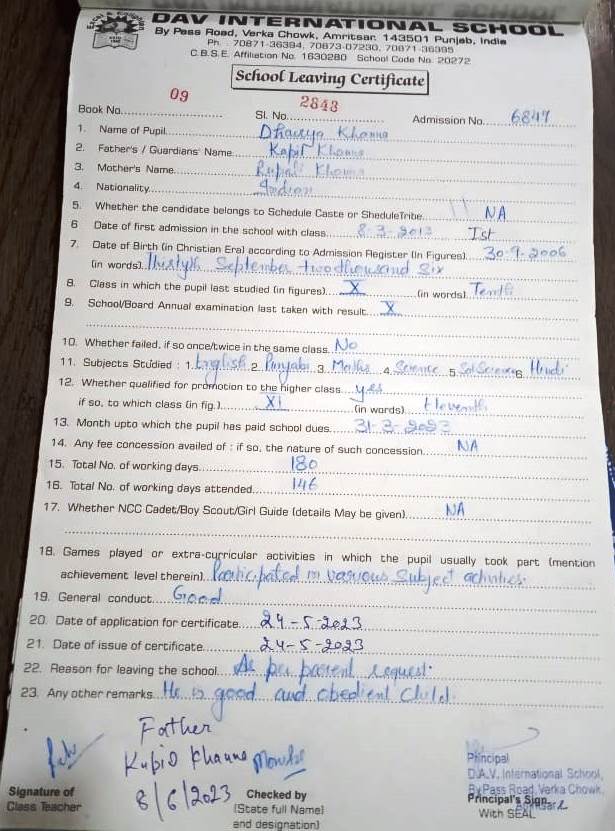 DAV INTERNATIONAL SCHOOL
By Pass Road, Verka Chowk, Amritsar. 143501 Punjab, India
Ph. : 70871-36394, 70873-07230, 70871-36395
C.B.S.E. Affiliation No. 1630280 School Code No. 20272
School Leaving Certificate
Book No. 09 Sl. No. 2843 Admission No. 6847
1. Name of Pupil Dhairya Khanna
2. Father's / Guardians' Name Kapil Khanna
3. Mother's Name Rupali Khanna
4. Nationality Indian
5. Whether the candidate belongs to Schedule Caste or SheduleTribe NA
6 Date of first admission in the school with class 8-3-2013 Ist
7. Date of Birth (in Christian Era) according to Admission Register (in Figures) 30-9-2006
(in words) Thirtyth September twothousand Six
8. Class in which the pupil last studied (in figures) X (in words) Tenth
9. School/Board Annual examination last taken with result X
10. Whether failed, if so once/twice in the same class No
11. Subjects Studied : 1. English 2. Punjabi 3. Maths 4. Science 5. Sst Science 6. Hindi
12. Whether qualified for promotion to the higher class yes
if so, to which class (in fig.) XI (in words) Eleventh
13. Month upto which the pupil has paid school dues 31-3-2023
14. Any fee concession availed of : if so, the nature of such concession NA
15. Total No. of working days 180
16. Total No. of working days attended 146
17. Whether NCC Cadet/Boy Scout/Girl Guide (details May be given) NA
18. Games played or extra-curricular activities in which the pupil usually took part (mention
achievement level therein) Participated in various Subject activities
19. General conduct Good
20. Date of application for certificate 24-5-2023
21. Date of issue of certificate 24-5-2023
22. Reason for leaving the school As per parent request
23. Any other remarks He is good and obedient Child
Father
Khanna
8/6/2023
Principal
D.A.V. International School,
By Pass Road, Verka Chowk,
Signature of
Class Teacher
Checked by
(State full Name
and designation)
Principal's Sign.
With SEAL